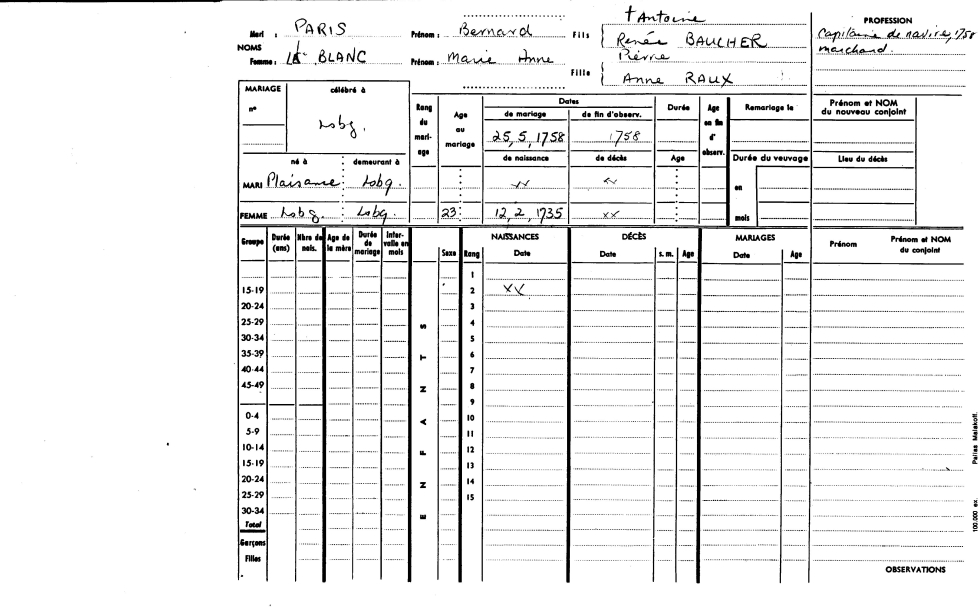 † Antoine
PROFESSION
Mari : PARIS Prénom : Bernard Fils { Renée BAUCHER
Capitaine de navire, 1758
NOMS
marchand
Femme : BLANC Prénom : Marie Anne Fille { Pierre
Anne RAUX
MARIAGE célébré à
n° Lsbg.
Rang du mariage
Age au mariage
Dates
de mariage de fin d'observ.
25, 5, 1758 1758
de naissance de décès
Durée
Age
Age en fin d'observ.
Remariage le
Durée du veuvage
en
mois
Prénom et NOM du nouveau conjoint
Lieu du décès
né à demeurant à
MARI Plaisance : Lsbg.
FEMME Lsbg. : Lsbg. 23 : 12, 2, 1735 xx
Groupe Durée (ans) Nbre de nais. Age de la mère Durée de mariage Intervalle en mois
ENFANTS
Sexe Rang NAISSANCES Date DÉCÈS Date s. m. Age MARIAGES Date Age Prénom Prénom et NOM du conjoint
1
15-19 2 xx
20-24 3
25-29 4
30-34 5
35-39 6
40-44 7
45-49 8
9
0-4 10
5-9 11
10-14 12
15-19 13
20-24 14
25-29 15
30-34
Total
Garçons
Filles
OBSERVATIONS
100.000 ex. Pallas Malakoff.